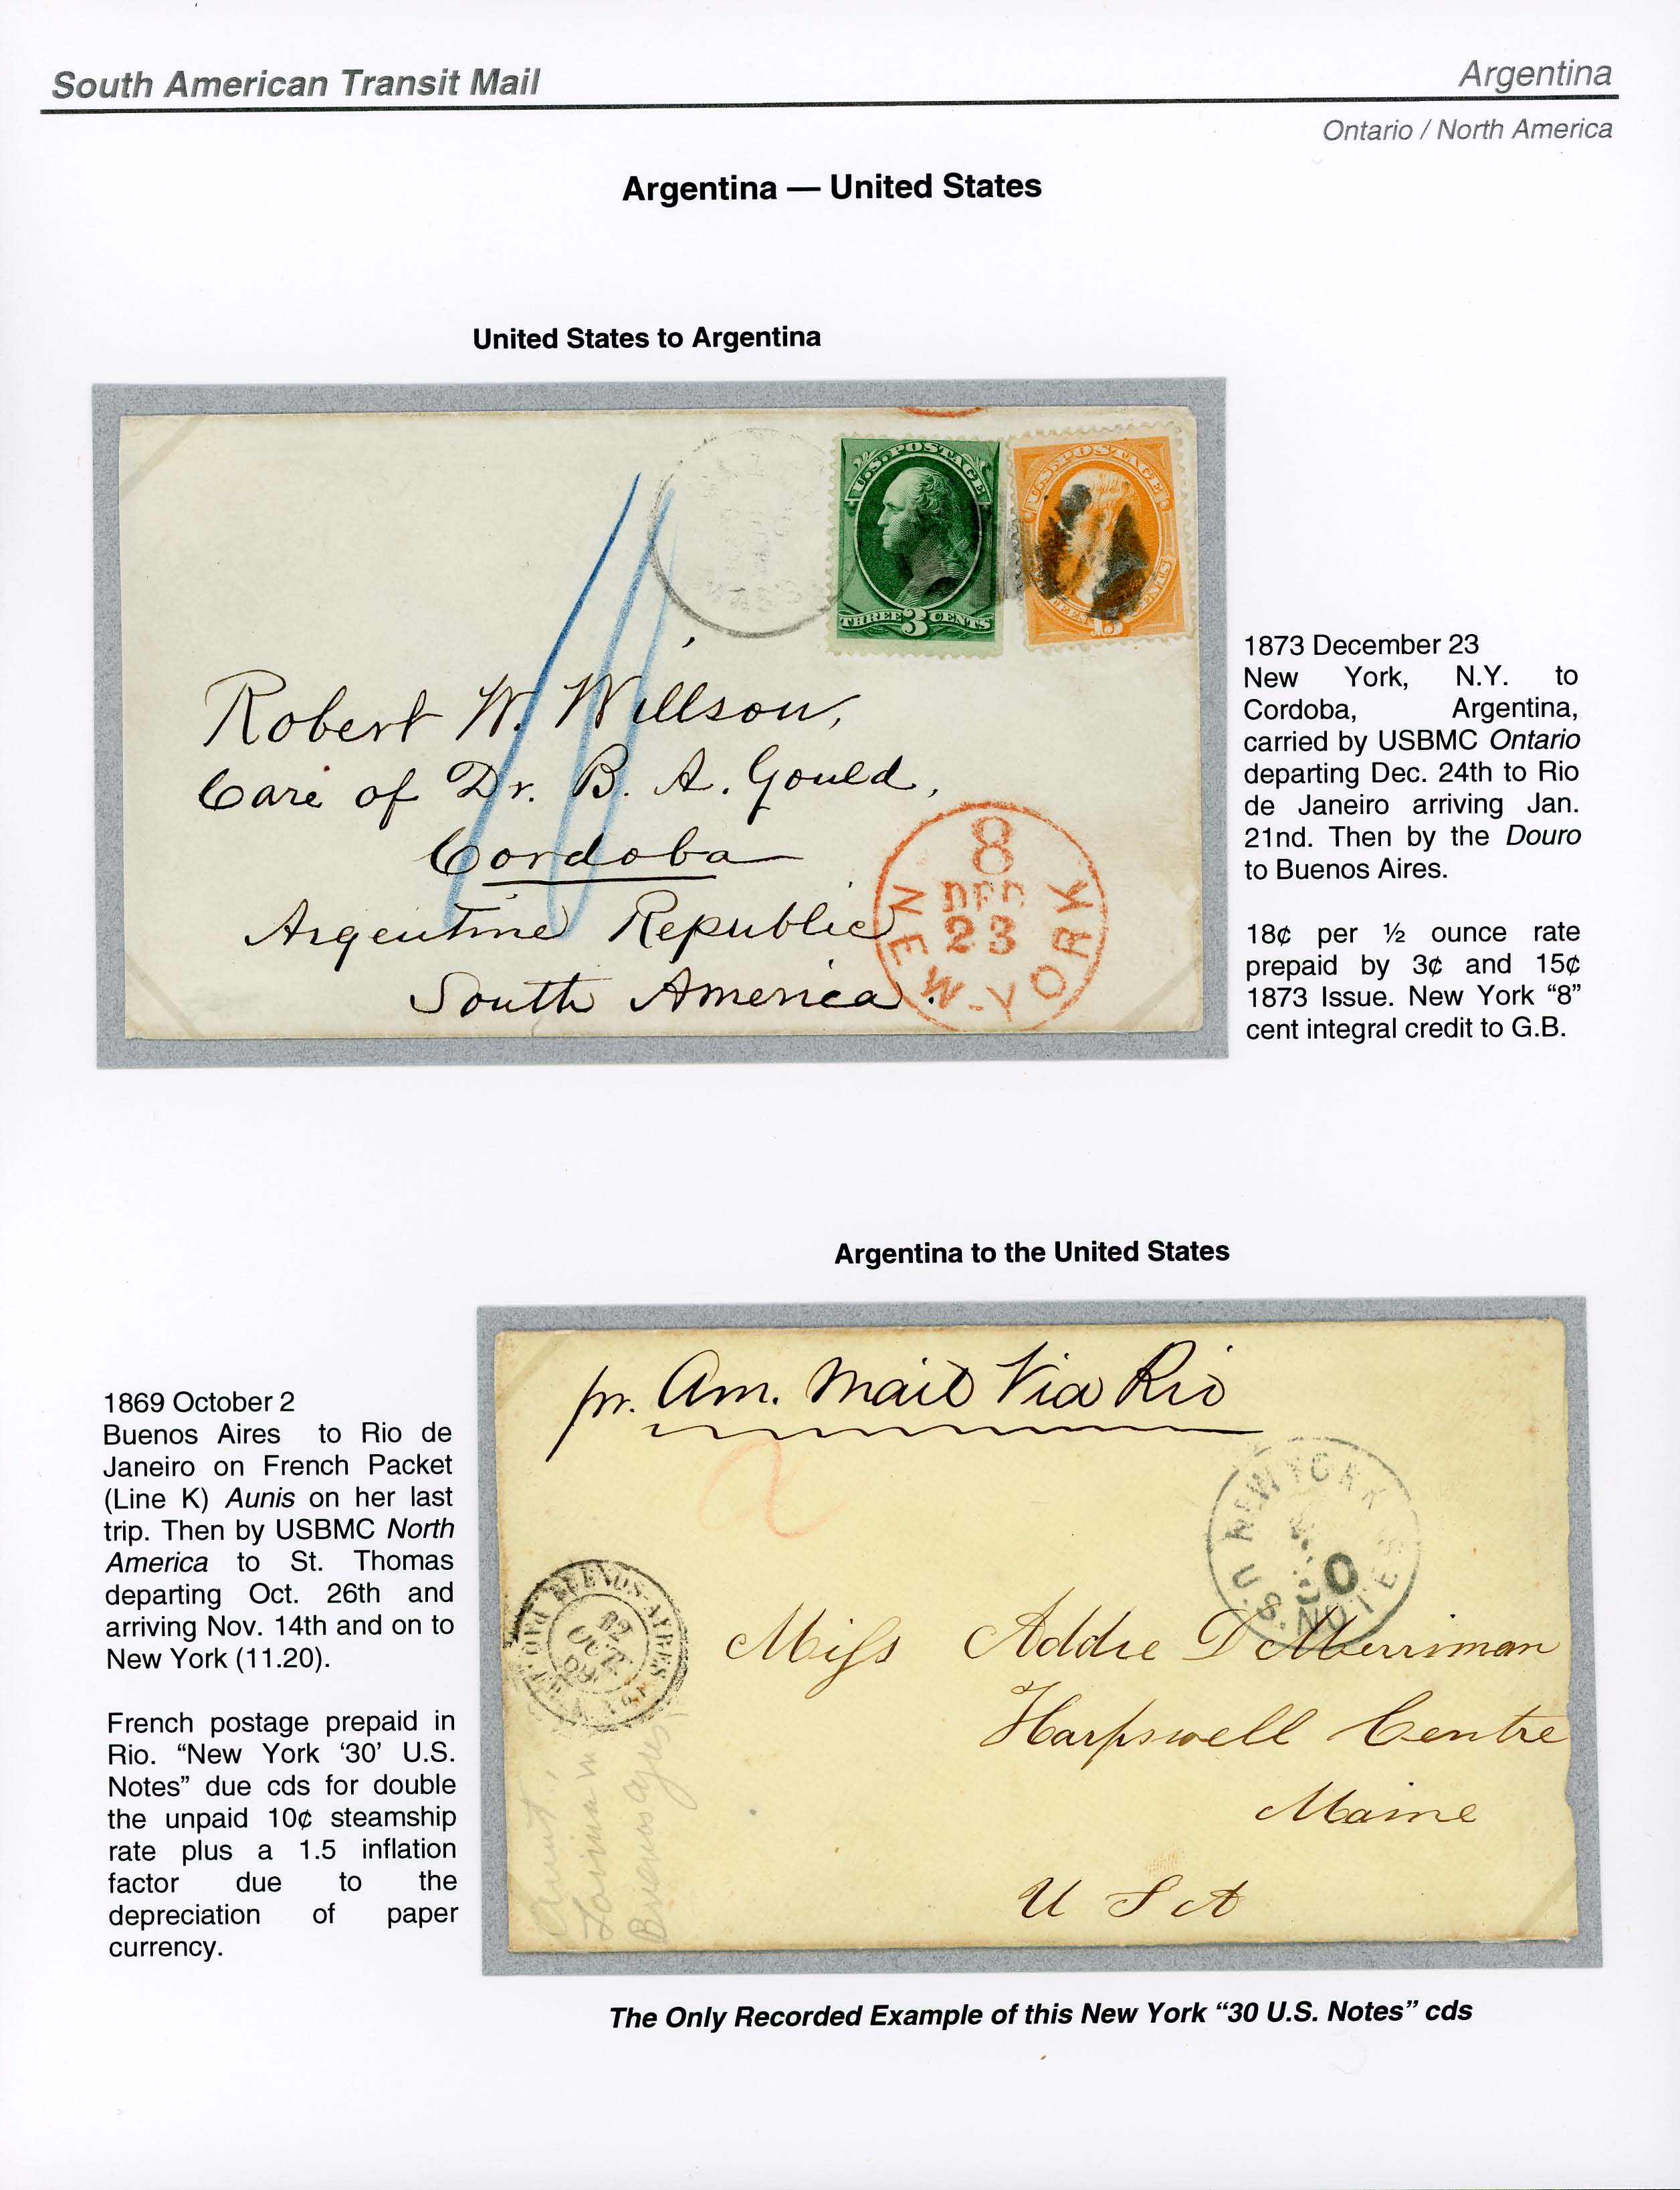 South American Transit Mail
Argentina
Ontario / North America
Argentina — United States
United States to Argentina
U.S. POSTAGE
THREE 3 CENTS
U.S. POSTAGE
15 CENTS
Robert W. Willson,
Care of Dr. B. A. Gould,
Cordoba
Argentine Republic
South America.
8
DEC
23
NEW-YORK
1873 December 23
New York, N.Y. to
Cordoba, Argentina,
carried by USBMC Ontario
departing Dec. 24th to Rio
de Janeiro arriving Jan.
21nd. Then by the Douro
to Buenos Aires.
18¢ per ½ ounce rate
prepaid by 3¢ and 15¢
1873 Issue. New York “8”
cent integral credit to G.B.
Argentina to the United States
1869 October 2
Buenos Aires to Rio de
Janeiro on French Packet
(Line K) Aunis on her last
trip. Then by USBMC North
America to St. Thomas
departing Oct. 26th and
arriving Nov. 14th and on to
New York (11.20).
French postage prepaid in
Rio. “New York ‘30’ U.S.
Notes” due cds for double
the unpaid 10¢ steamship
rate plus a 1.5 inflation
factor due to the
depreciation of paper
currency.
pr. Am. Mail Via Rio
2
NEW YORK
U.S. NOTES
BUENOS-AYRES
OCT
Miss Addie D Merriman
Harpswell Centre
Maine
U S A
Aunt
Buenos Ayres
The Only Recorded Example of this New York “30 U.S. Notes” cds